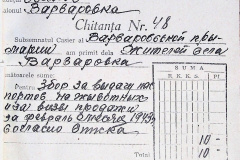 Варваровка
Chitanța Nr. 48
Subsemnatul Casier al Варваровской при-
мэрии am primit dela Жителей села
Варваровка
următoarele sume:
Pentru Збор за выдачу пас
портов на животных
и за визы продажи
за февраль месяц 1943г
Согласно Списка
SUMA
R. K. K. S. P. I.
10 -
Total 10 -